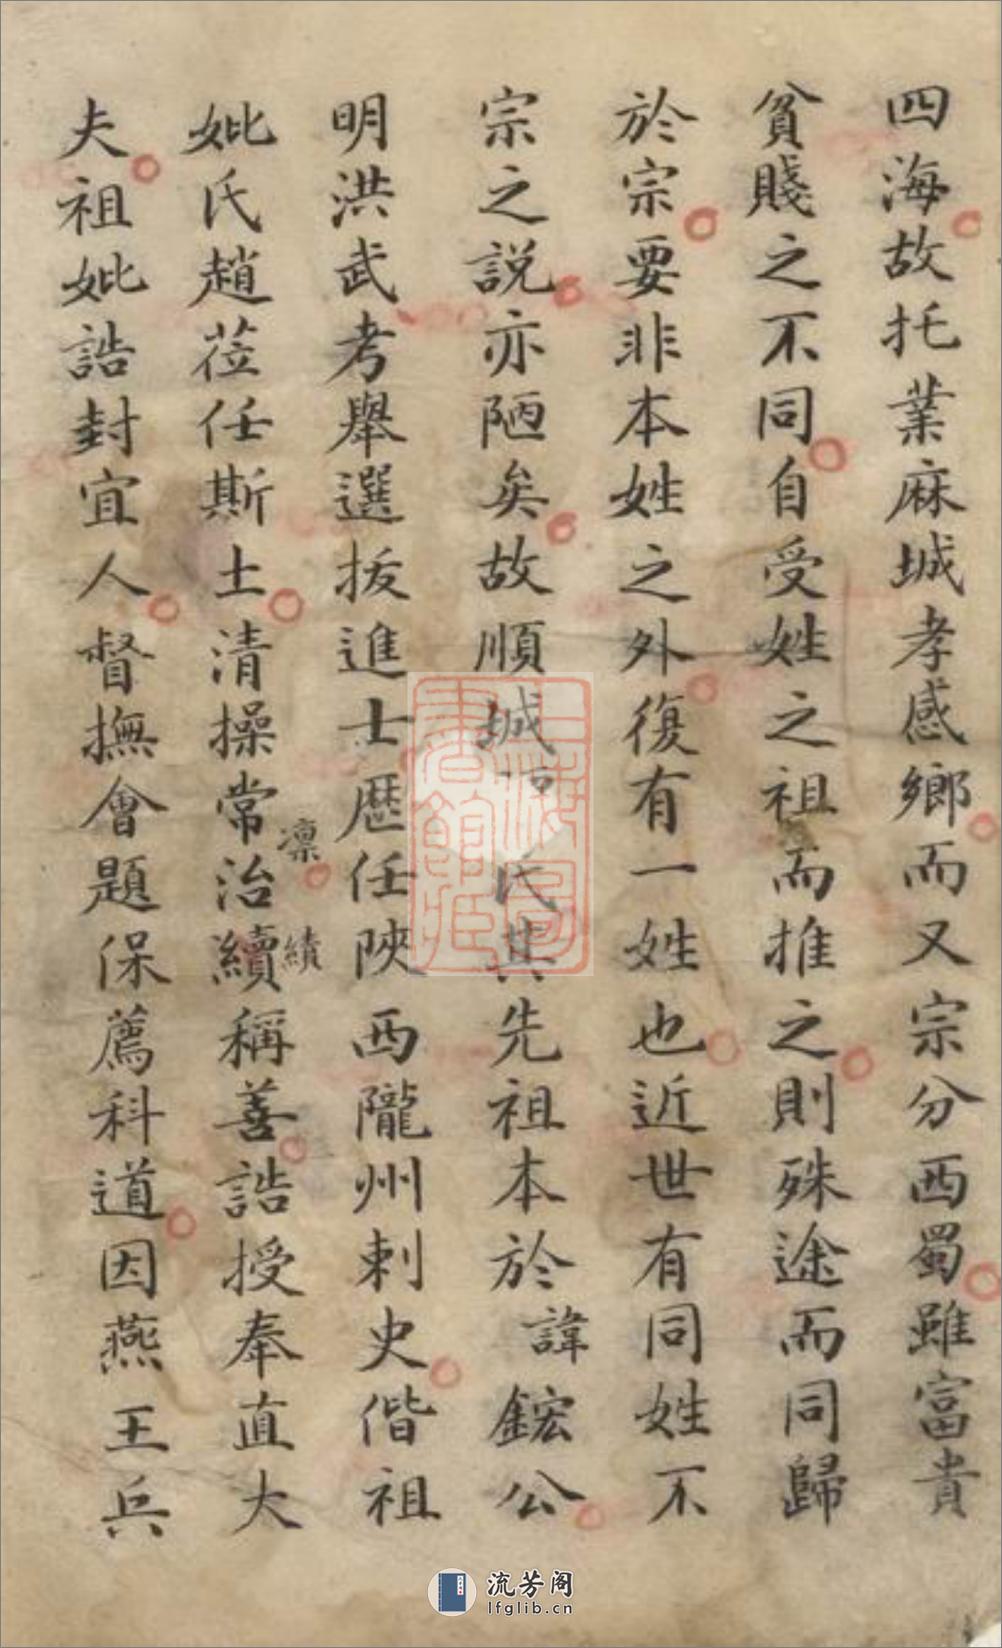 四海故托業麻城孝感鄉而又宗分西蜀雖富貴
貧賤之不同自受姓之祖而推之則殊途而同歸
於宗要非本姓之外復有一姓也近世有同姓不
宗之說亦陋矣故順城氏其先祖本於諱鋐公
明洪武考舉選拔進士歷任陝西隴州刺史偕祖
凜績
妣氏趙蒞任斯土清操常治續稱善誥授奉直大
夫祖妣誥封宜人督撫會題保薦科道因燕王兵
上海圖書館藏
流芳阁
lfglib.cn